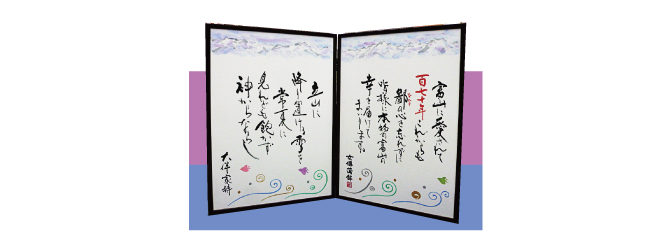 富山に愛されて
百七十年これからも
の心を忘れずに
皆様に本物の富山の
幸を届けて
まいります。
立山に
降り置ける雪を
常夏に
見れども飽かず
神からならし
大伴家持